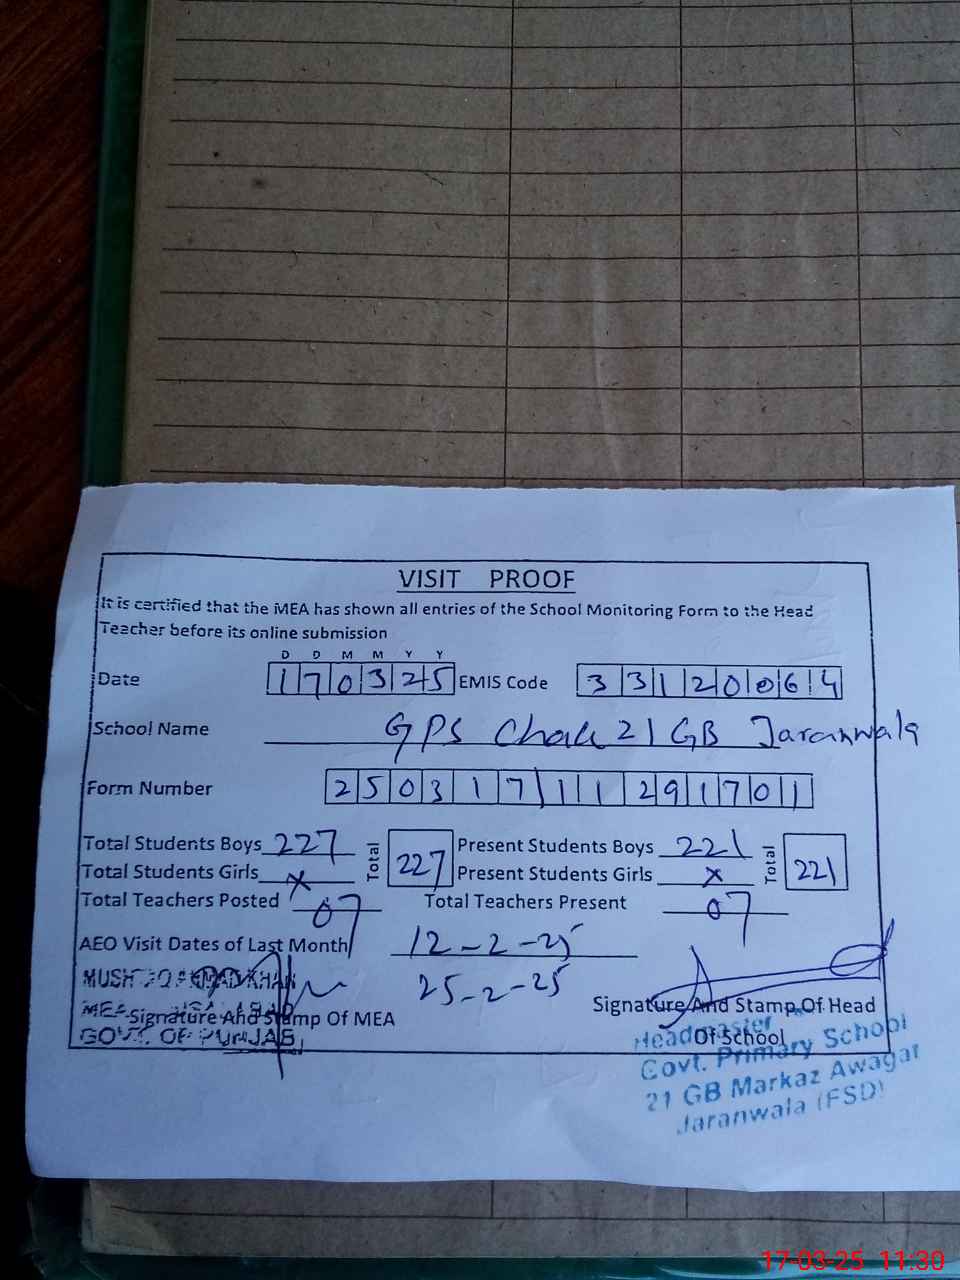 VISIT PROOF
It is certified that the MEA has shown all entries of the School Monitoring Form to the Head
Teacher before its online submission
D D M M Y Y
Date 170325 EMIS Code 33120064
School Name GPS Chak 21 GB Jaranwala
Form Number 2503171112 91701
Total Students Boys 227 Total 227 Present Students Boys 221 Total 221
Total Students Girls x Present Students Girls x
Total Teachers Posted 07 Total Teachers Present 07
AEO Visit Dates of Last Month 12-2-25
25-2-25
MUSHTAQ AHMAD KHAN
MEA
Signature And Stamp Of MEA
GOVT. OF PUNJAB
Signature And Stamp Of Head
Of School
Headmaster
Govt. Primary School
21 GB Markaz Awagat
Jaranwala (FSD)
17-03-25 11:30